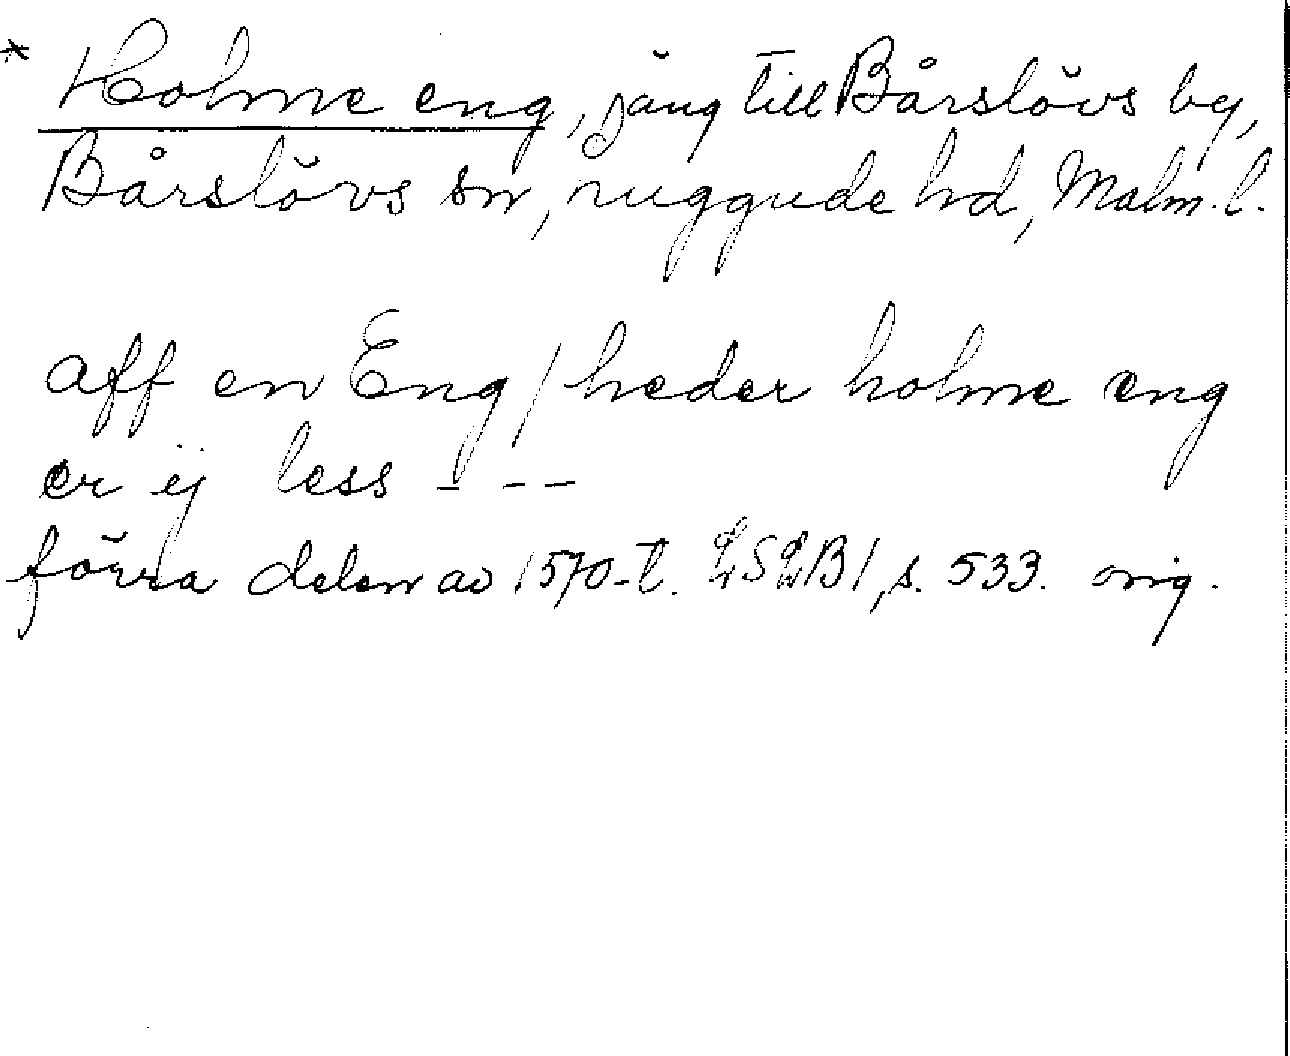 * Holme eng, jäng till Bårslövs by,
Bårslövs sn, ruggude hd, Malm. l.
aff en Eng / heder holme eng
er ej less - - -
förra delen av 1570-t. LSLB1, s. 533. orig.